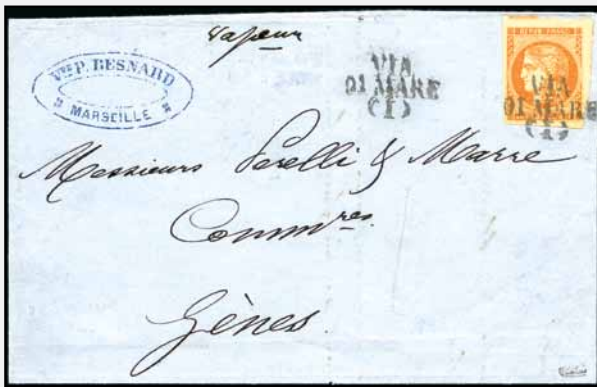 Vapeur
Vve P. BESNARD
MARSEILLE
VIA
DI MARE
(I)
REPUB. FRANC.
VIA
DI MARE
(I)
Messieurs Perelli & Marre
Comm.res
Gênes.